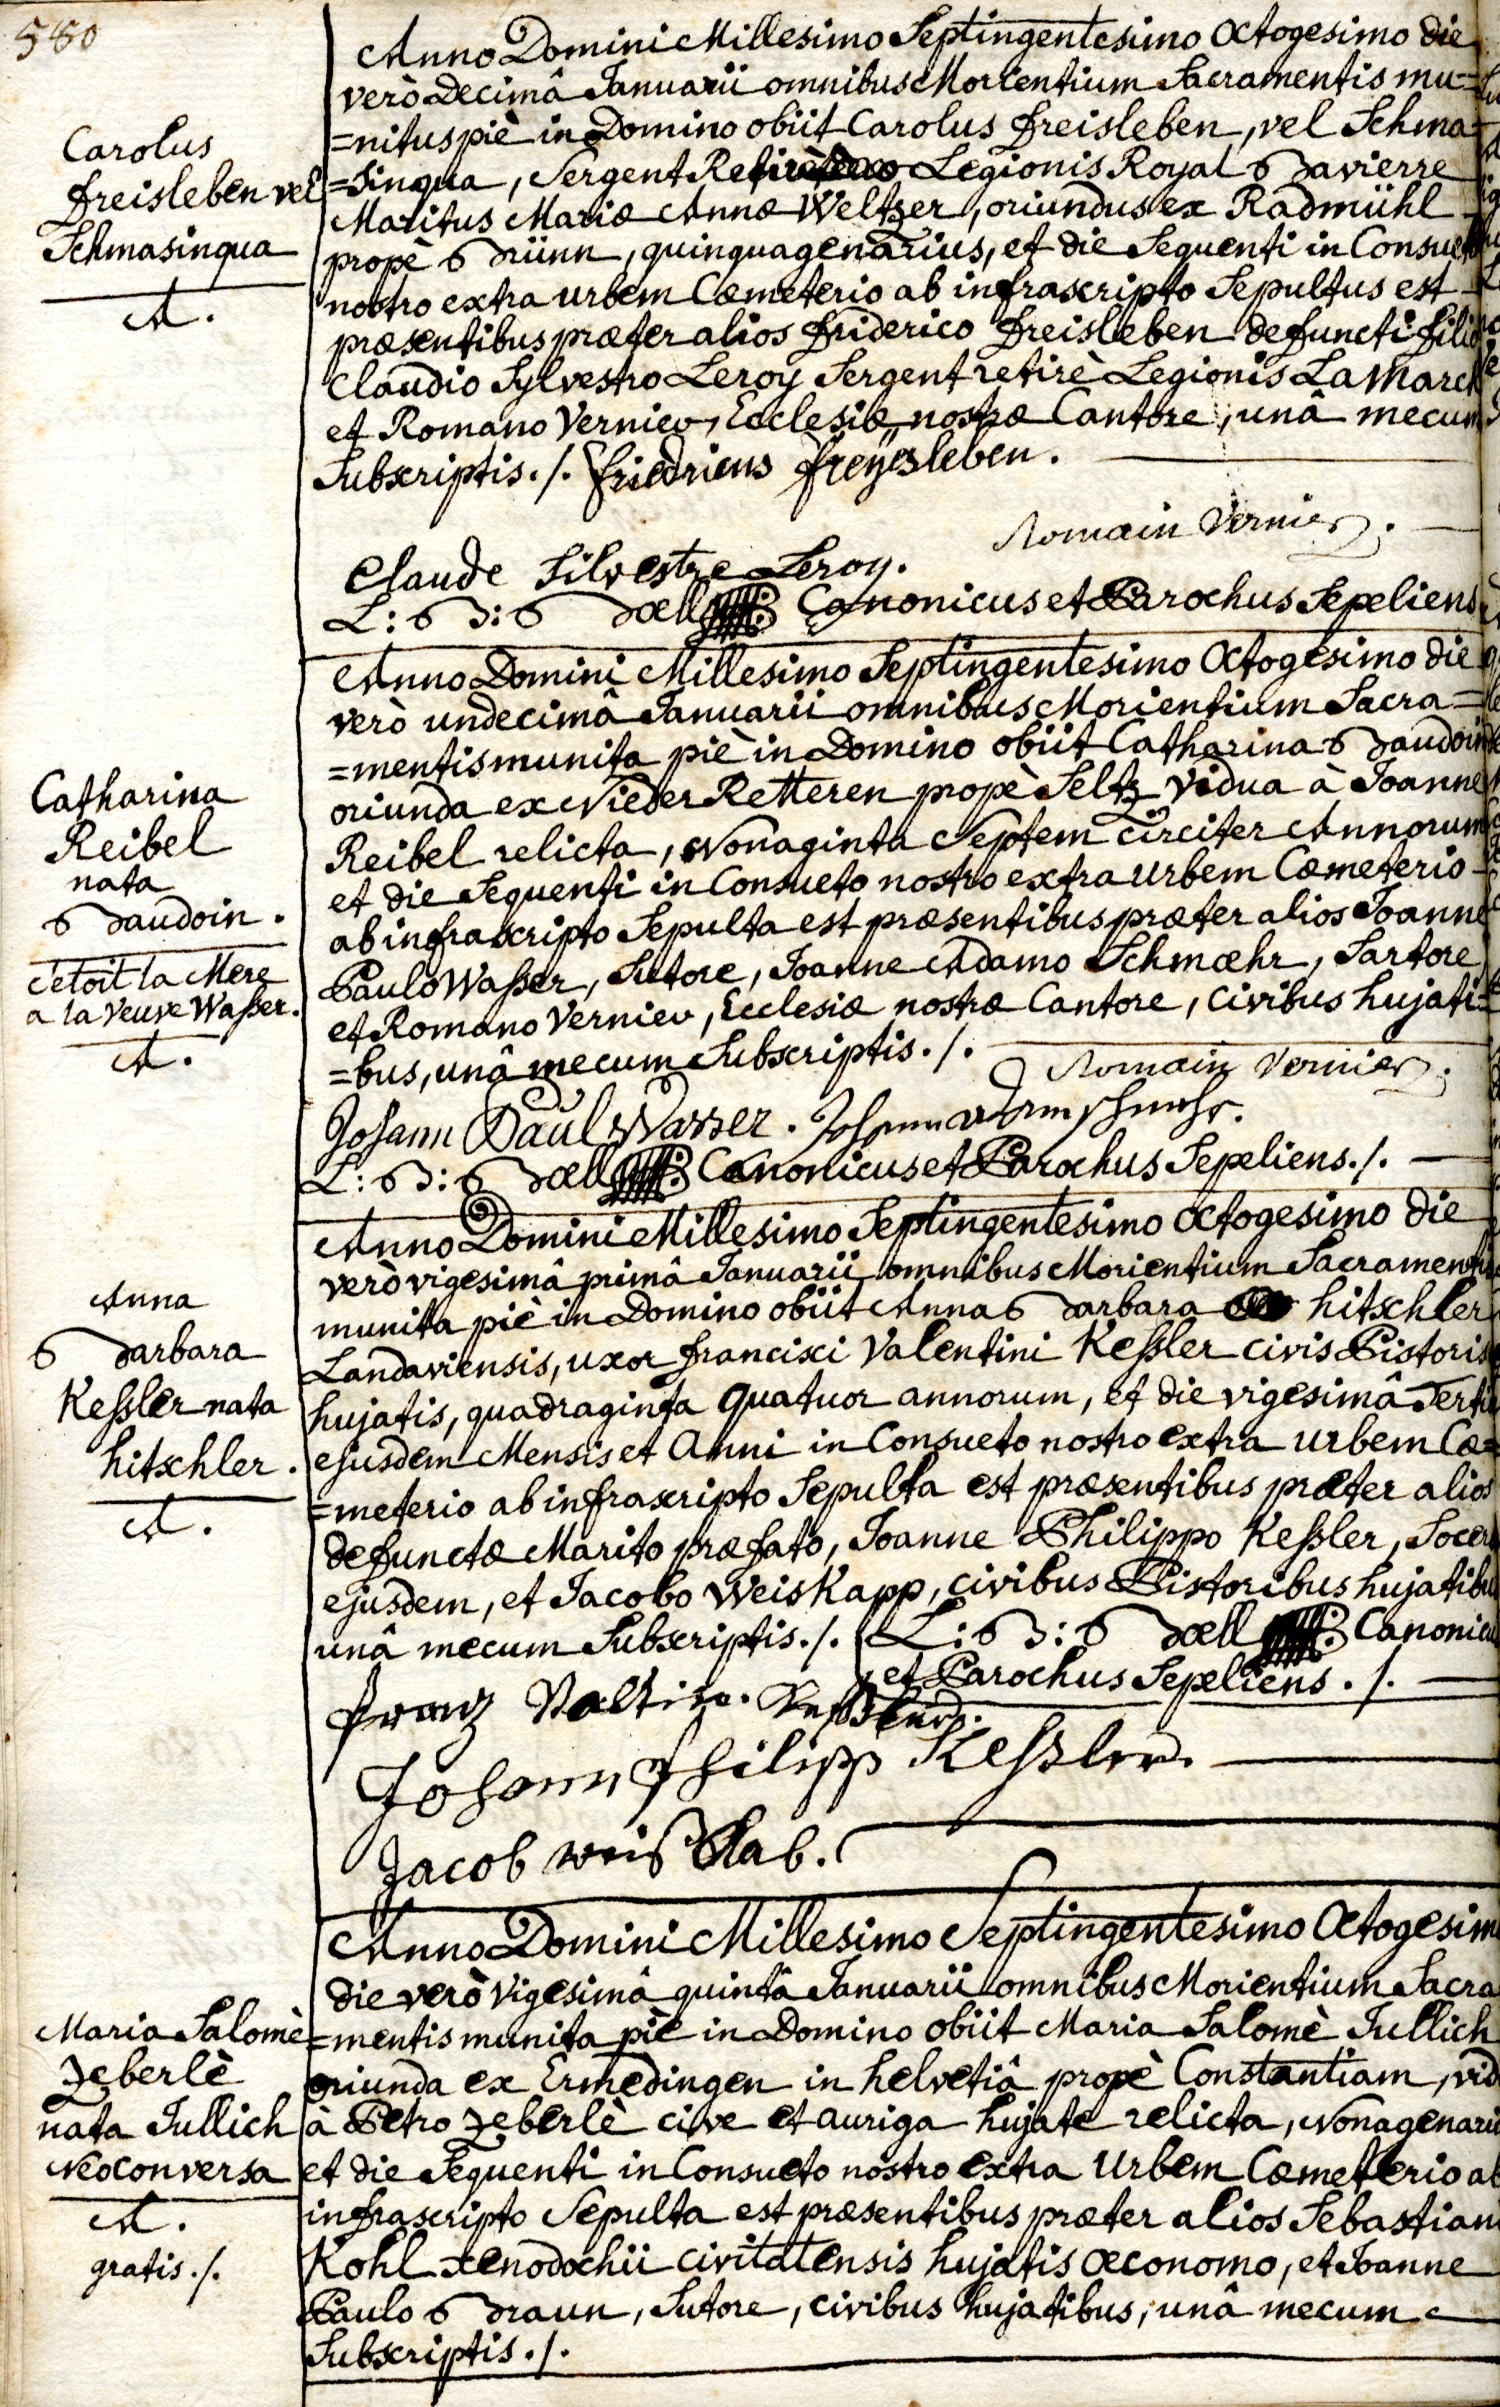 580
Carolus
Freisleben vel
Schmasinqua
A.
Anno Domini Millesimo Septingentesimo Octogesimo die
verò Decimâ Januarii omnibus Morientium Sacramentis mu=
=nitus piè in Domino obiit Carolus Freisleben, vel Schma=
=sinqua, Sergent Retirè Legionis Royal Bavierre
Maritus Mariæ Annæ Weltzer, oriundus ex Radmühl
propè Brünn, quinquagenarius, et die Sequenti in Consueto
nostro extra urbem Cœmeterio ab infrascripto Sepultus est
præsentibus præter alios Friderico Freisleben defuncti filio
Claudio Sylvestro Leroy Sergent retirè Legionis La Marck
et Romano Vernier, Ecclesiæ nostræ Cantore, unâ mecum
Subscriptis ./. Friedricus Freyesleben.
Romain Vernier.
Claude Silvestre Leroy.
L: B: Bœll Canonicus et Parochus Sepeliens
Catharina
Reibel
nata
Baudoin.
c'etoit la Mere
a la Veuve Wasser.
A.
Anno Domini Millesimo Septingentesimo Octogesimo die
verò undecimâ Januarii omnibus Morientium Sacra=
=mentis munita piè in Domino obiit Catharina Baudoin
oriunda ex Nieder Retteren propè Seltz Vidua à Joanne
Reibel relicta, Nonaginta Septem circiter Annorum
et die Sequenti in Consueto nostro extra urbem Cœmeterio
ab infrascripto Sepulta est præsentibus præter alios Joanne
Paulo Waßer, Sutore, Joanne Adamo Schmœhr, Sartore
et Romano Vernier, Ecclesiæ nostræ Cantore, Civibus hujati=
=bus, unâ mecum Subscriptis ./.
Romain Vernier.
Johann Paul Wasser. Johann Adam Schmehr.
L: B: Bœll Canonicus et Parochus Sepeliens ./.
Anna
Barbara
Keßler nata
hitschler.
A.
Anno Domini Millesimo Septingentesimo Octogesimo die
verò vigesimâ primâ Januarii omnibus Morientium Sacramentis
munita piè in Domino obiit Anna Barbara hitschler
Landaviensis, uxor Francisci Valentini Keßler civis Pistoris
hujatis, quadraginta quatuor annorum, et die vigesimâ Tertiâ
ejusdem Mensis et Anni in Consueto nostro extra urbem Cœ=
=meterio ab infrascripto Sepulta est præsentibus præter alios
defunctæ Marito præfato, Joanne Philippo Keßler, Socero
ejusdem, et Jacobo Weiskapp, civibus Pistoribus hujatibus
unâ mecum Subscriptis ./. L: B: Bœll Canonicus
et Parochus Sepeliens ./.
Franz Valtin. Keßler.
Johann Philipp Keßler.
Jacob weis Kab.
Maria Salomè
Zeberlè
nata Jullich
Neoconversa
A.
gratis ./.
Anno Domini Millesimo Septingentesimo Octogesimo
die verò Vigesimâ quintâ Januarii omnibus Morientium Sacra
=mentis munita piè in Domino obiit Maria Salomè Jullich
oriunda ex Ermedingen in helvetiâ propè Constantiam, vid
à Petro Zeberlè cive et auriga hujate relicta, Nonagenaria
et die Sequenti in Consueto nostro extra Urbem Cœmeterio ab
infrascripto Sepulta est præsentibus præter alios Sebastiano
Kohl xenodochii civitatensis hujatis œconomo, et Joanne
Paulo Braun, Sutore, civibus hujatibus, unâ mecum
Subscriptis ./.